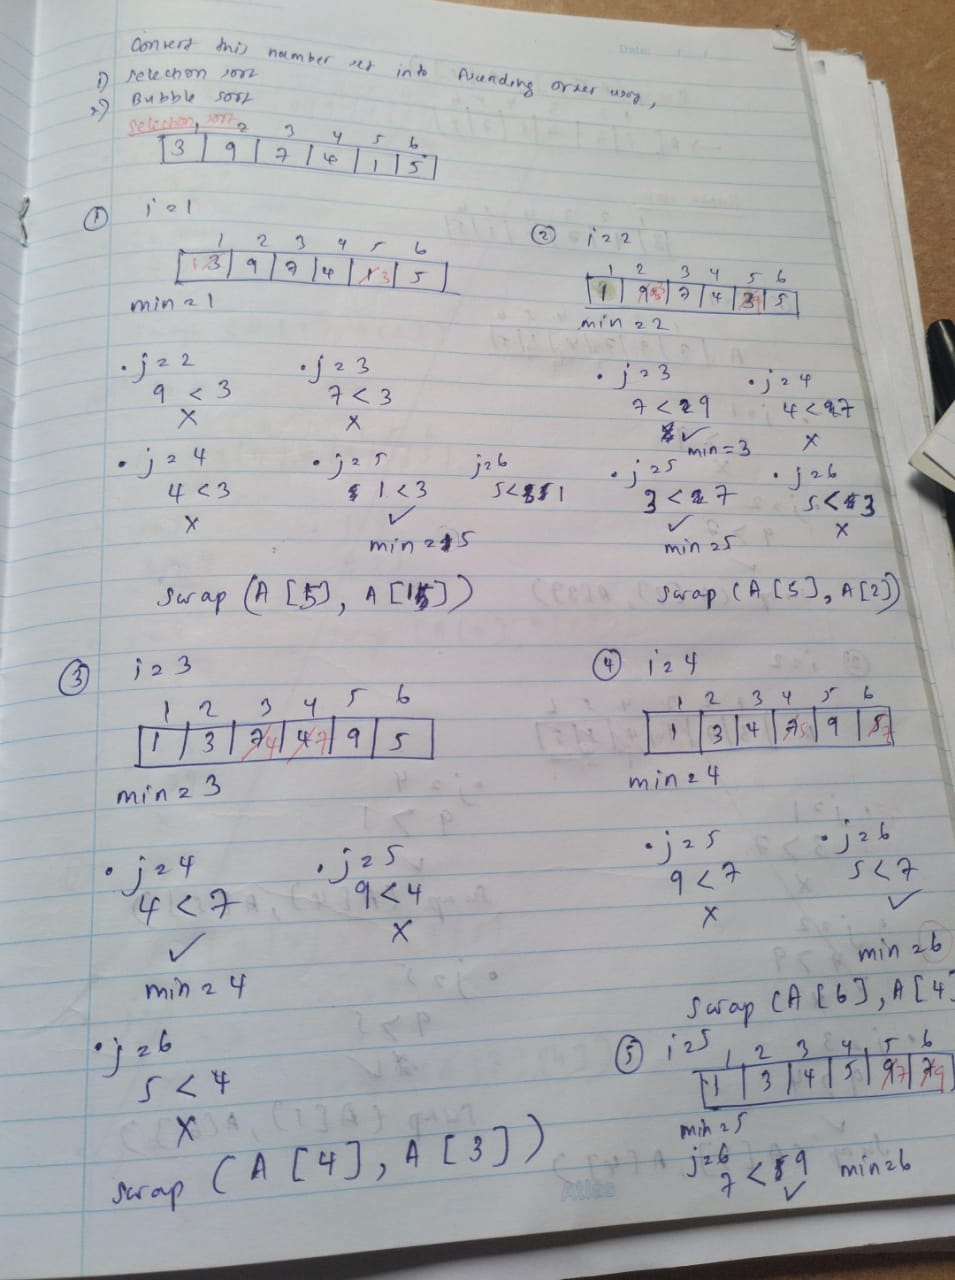 Date:
Convert this number set into Asending order using,
1) selection sort
2) Bubble sort
selection sort
2 3 4 5 6
3 9 7 4 1 5
① i=1
1 2 3 4 5 6
1 3 9 7 4 1 3 5
min=1
• j=2 • j=3
9 < 3 7 < 3
x x
• j=4 • j=5 j=6
4 < 3 1 < 3 5 < 1
x ✓
min=5
swap (A [5], A [1])
② i=2
1 2 3 4 5 6
1 9 3 7 4 3 9 5
min=2
• j=3 • j=4
7 < 9 4 < 7
✓ min=3 x
• j=5 • j=6
3 < 7 5 < 3
✓ x
min=5
swap (A [5], A [2])
③ i=3
1 2 3 4 5 6
1 3 7 4 4 7 9 5
min=3
• j=4 • j=5
4 < 7 9 < 4
✓ x
min=4
• j=6
5 < 4
x
swap (A [4], A [3])
④ i=4
1 2 3 4 5 6
1 3 4 7 5 9 5 7
min=4
• j=5 • j=6
9 < 7 5 < 7
x ✓
min=6
swap (A [6], A [4]
⑤ i=5
1 2 3 4 5 6
1 3 4 5 9 7 7 9
min=5
j=6
7 < 9 min=6
✓
Atlas